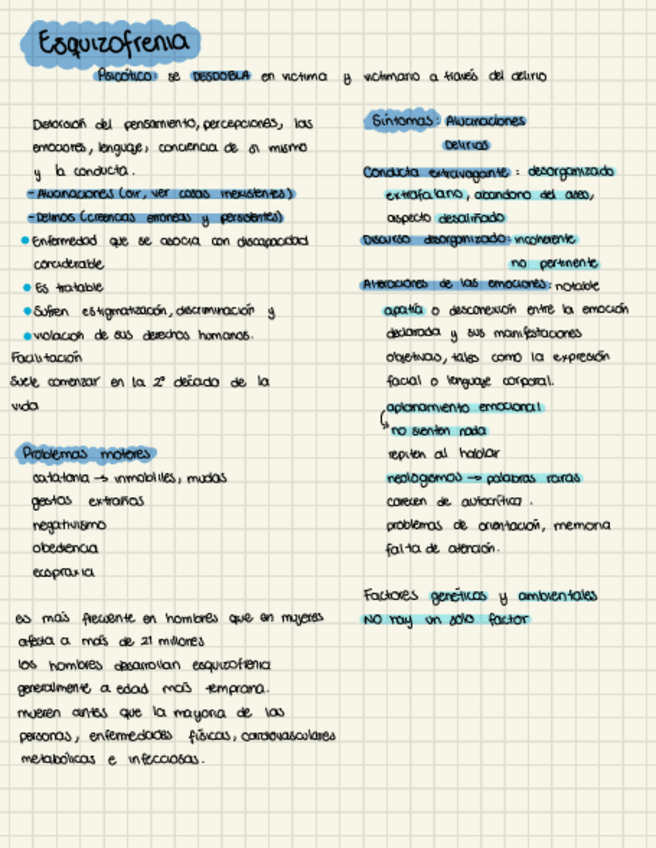 Esquizofrenia
Psicótico: se DESDOBLA en victima y victimario a través del delirio
Distorsión del pensamiento, percepciones, las
emociones, lenguaje, conciencia de si mismo
y la conducta.
-Alucinaciones (oir, ver cosas inexistentes)
-Delirios (creencias erroneas y persistentes)
Enfermedad que se asocia con discapacidad
considerable
Es tratable
Sufren estigmatización, discriminación y
violación de sus derechos humanos.
Facilitación
Suele comenzar en la 2º década de la
vida
Problemas motores
catatonia → inmobiles, mudas
gestos extraños
negativismo
obediencia
ecopraxia
es más frecuente en hombres que en mujeres
afecta a más de 21 millones
los hombres desarrollan esquizofrenia
generalmente a edad más temprana.
mueren antes que la mayoria de las
personas, enfermedades físicas, cardiovasculares
metabólicas e infecciosas.
Síntomas: Alucinaciones
Delirios
Conducta extravagante: desorganizado
extrafalario, abandono del aseo,
aspecto desaliñado
Discurso desorganizado: incoherente
no pertinente
Alteraciones de las emociones: notable
apatía o desconexión entre la emoción
declarada y sus manifestaciones
objetivas, tales como la expresión
facial o lenguaje corporal.
aplanamiento emocional
no sienten nada
repiten al hablar
neologismos → palabras raras
carecen de autocrítica.
problemas de orientación, memoria
falta de atención.
Factores genéticos y ambientales
NO hay un solo factor